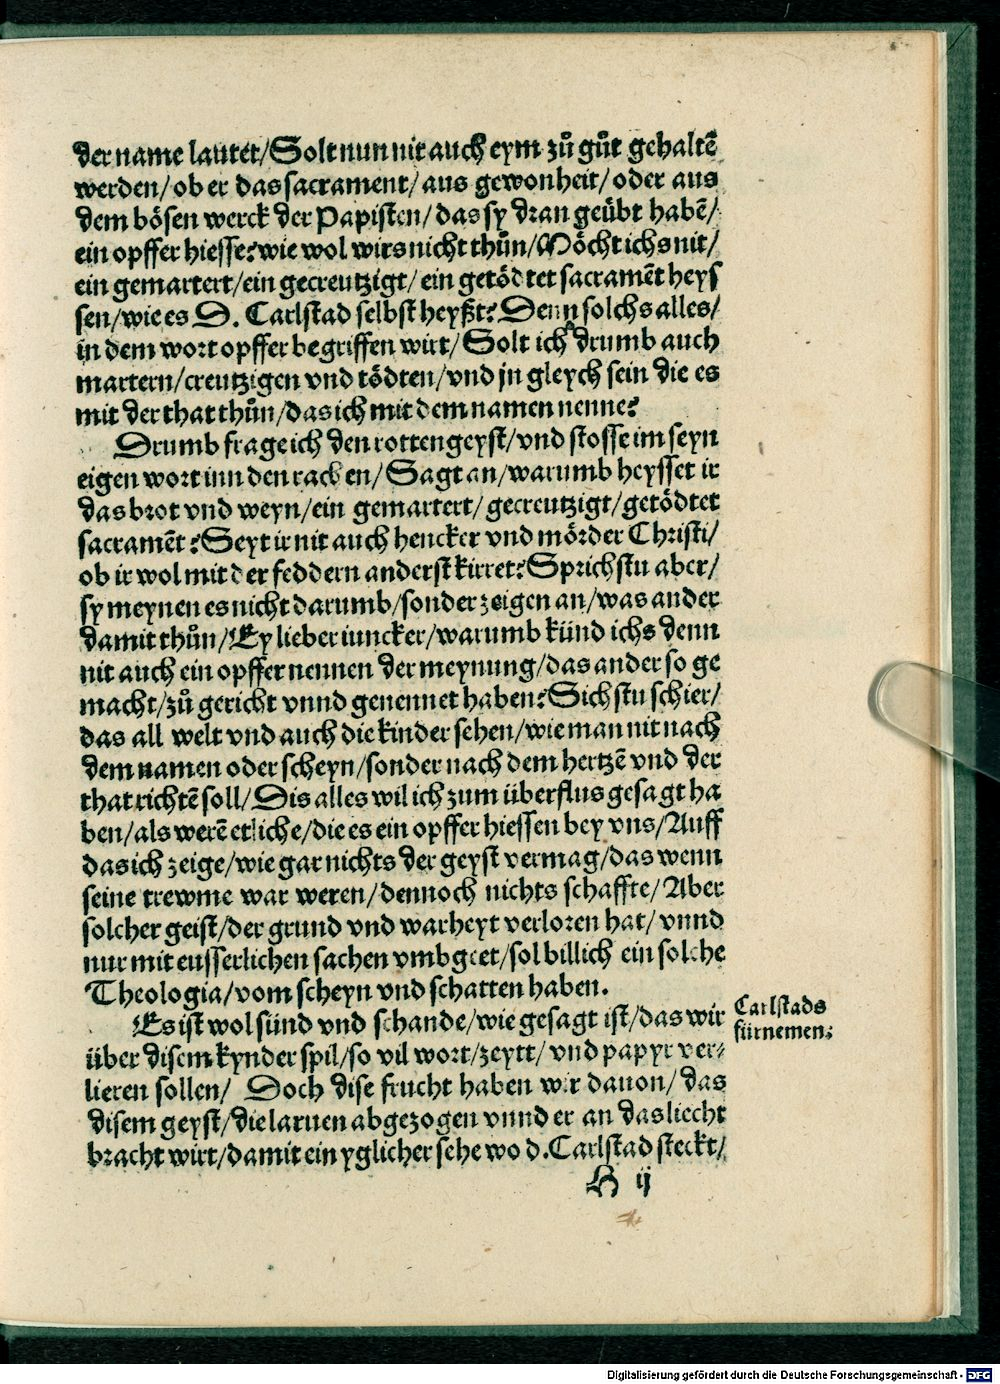 der name lautet/Solt nun nit auch eym zů gůt gehaltē
werden/ob er das sacrament/aus gewonheit/oder aus
dem bösen werck der Papisten/das sy dran geübt habē/
ein opffer hiesse? wie wol wirs nicht thůn/Möcht ichs nit/
ein gemartert/ein gecreutzigt/ein getödtet sacramēt heys
sen/wie es D. Carlstad selbst heyßt? Denn solchs alles/
in dem wort opffer begriffen wirt/Solt ich drumb auch
martern/creutzigen vnd tödten/vnd jn gleych sein die es
mit der that thůn/das ich mit dem namen nenne?
Drumb frage ich den rottengeyst/vnd stosse im seyn
eigen wort inn den rachen/Sagt an/warumb heysset ir
das brot vnd weyn/ein gemartert/gecreutzigt/getödtet
sacramēt? Seyt ir nit auch hencker vnd mörder Christi/
ob ir wol mit der feddern anderst kirret? Sprichstu aber/
sy meynen es nicht darumb/sonder zeigen an/was ander
damit thůn/Ey lieber iuncker/warumb künd ichs denn
nit auch ein opffer nennen der meynung/das ander so ge
macht/zů gericht vnnd genennet haben? Sichstu schier/
das all welt vnd auch die kinder sehen/wie man nit nach
dem namen oder scheyn/sonder nach dem hertzē vnd der
that richtē soll/Dis alles wil ich zum überflus gesagt ha
ben/als werē etliche/die es ein opffer hiessen bey vns/Auff
das ich zeige/wie gar nichts der geyst vermag/das wenn
seine trewme war weren/dennoch nichts schaffte/Aber
solcher geist/der grund vnd warheyt verloren hat/vnnd
nur mit eusserlichen sachen vmbgeet/sol billich ein solche
Theologia/vom scheyn vnd schatten haben.
Es ist wol sünd vnd schande/wie gesagt ist/das wir
über disem kynder spil/so vil wort/zeytt/vnd papyr ver⸗
lieren sollen/ Doch dise frucht haben wir dauon/das
disem geyst/die laruen abgezogen vnnd er an das liecht
bracht wirt/damit ein yglicher sehe wo d. Carlstad steckt/
H ij
Carlstads
fürnemen:
Digitalisierung gefördert durch die Deutsche Forschungsgemeinschaft - DFG